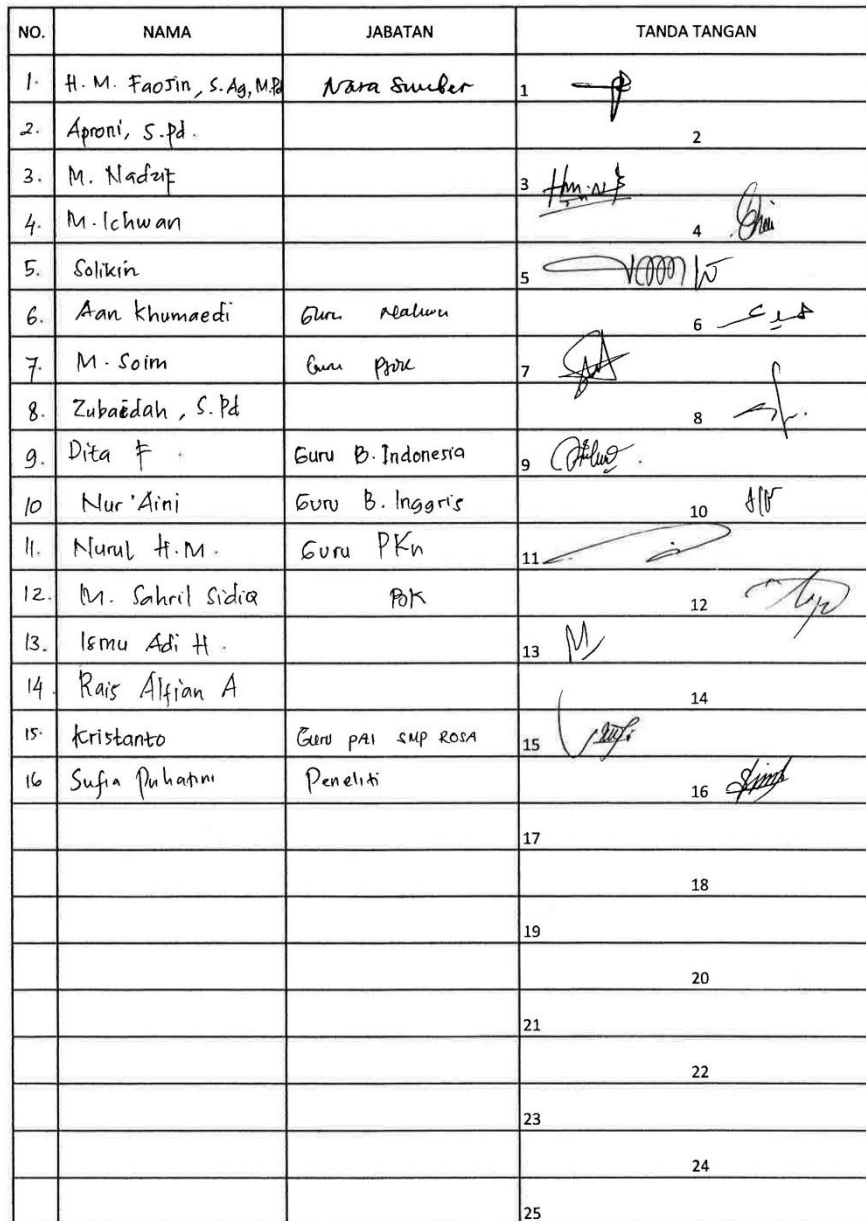 NO. NAMA JABATAN TANDA TANGAN
1. H. M. Faojin, S.Ag, M.Pd Nara Sumber 1
2. Aproni, S.Pd. 2
3. M. Nadzif 3
4. M. Ichwan 4
5. Solikin 5
6. Aan Khumaedi Guru 6
7. M. Soim Guru 7
8. Zubaedah, S.Pd 8
9. Dita F. Guru B. Indonesia 9
10 Nur 'Aini Guru B. Inggris 10
11. Nurul H.M. Guru PKn 11
12. M. Sahril Sidiq BK 12
13. Ismu Adi H. 13
14 Rais Alfian A 14
15. Kristanto Guru PAI SMP ROSA 15
16 Sufia Peneliti 16
17
18
19
20
21
22
23
24
25